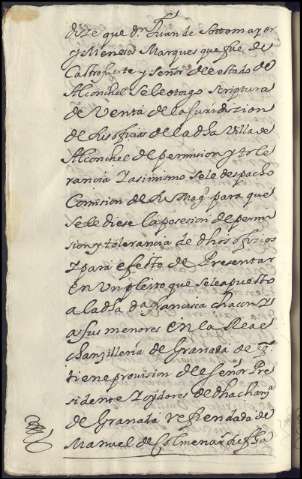 dize que Dn Juan de Sottomayor
y Meneses Marques que fue de
Castrofuerte y Señor del estado de
Alconchel se le otorgo scriptura
de Venta de la Jurisdizion
de los ofizios de la dha Villa de
Alconchel de permision y tole
rancia y asimismo se le despacho
Comision de su Magd para que
se le diese la posesion de permi
sion y tolerancia de dhos ofizios
y para efecto de Presentar
en un pleito que se le a puesto
a la dha Da Francisca chacon y
a sus menores en la Real
chanzilleria de Granada de q
tiene provision de señor Pre
sidente y oydores de dha chanza
de Granada refrendada de
Manuel de Colmenar